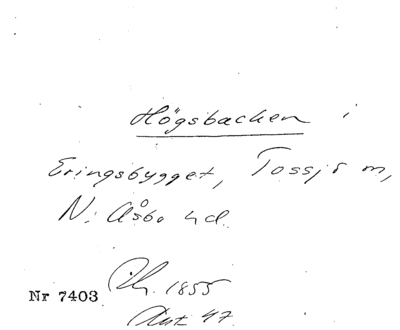 Högsbacken i
Eringsbygget, Tossjö m,
N. Åsbo hd.
1855
Nr 7403
Akt 47